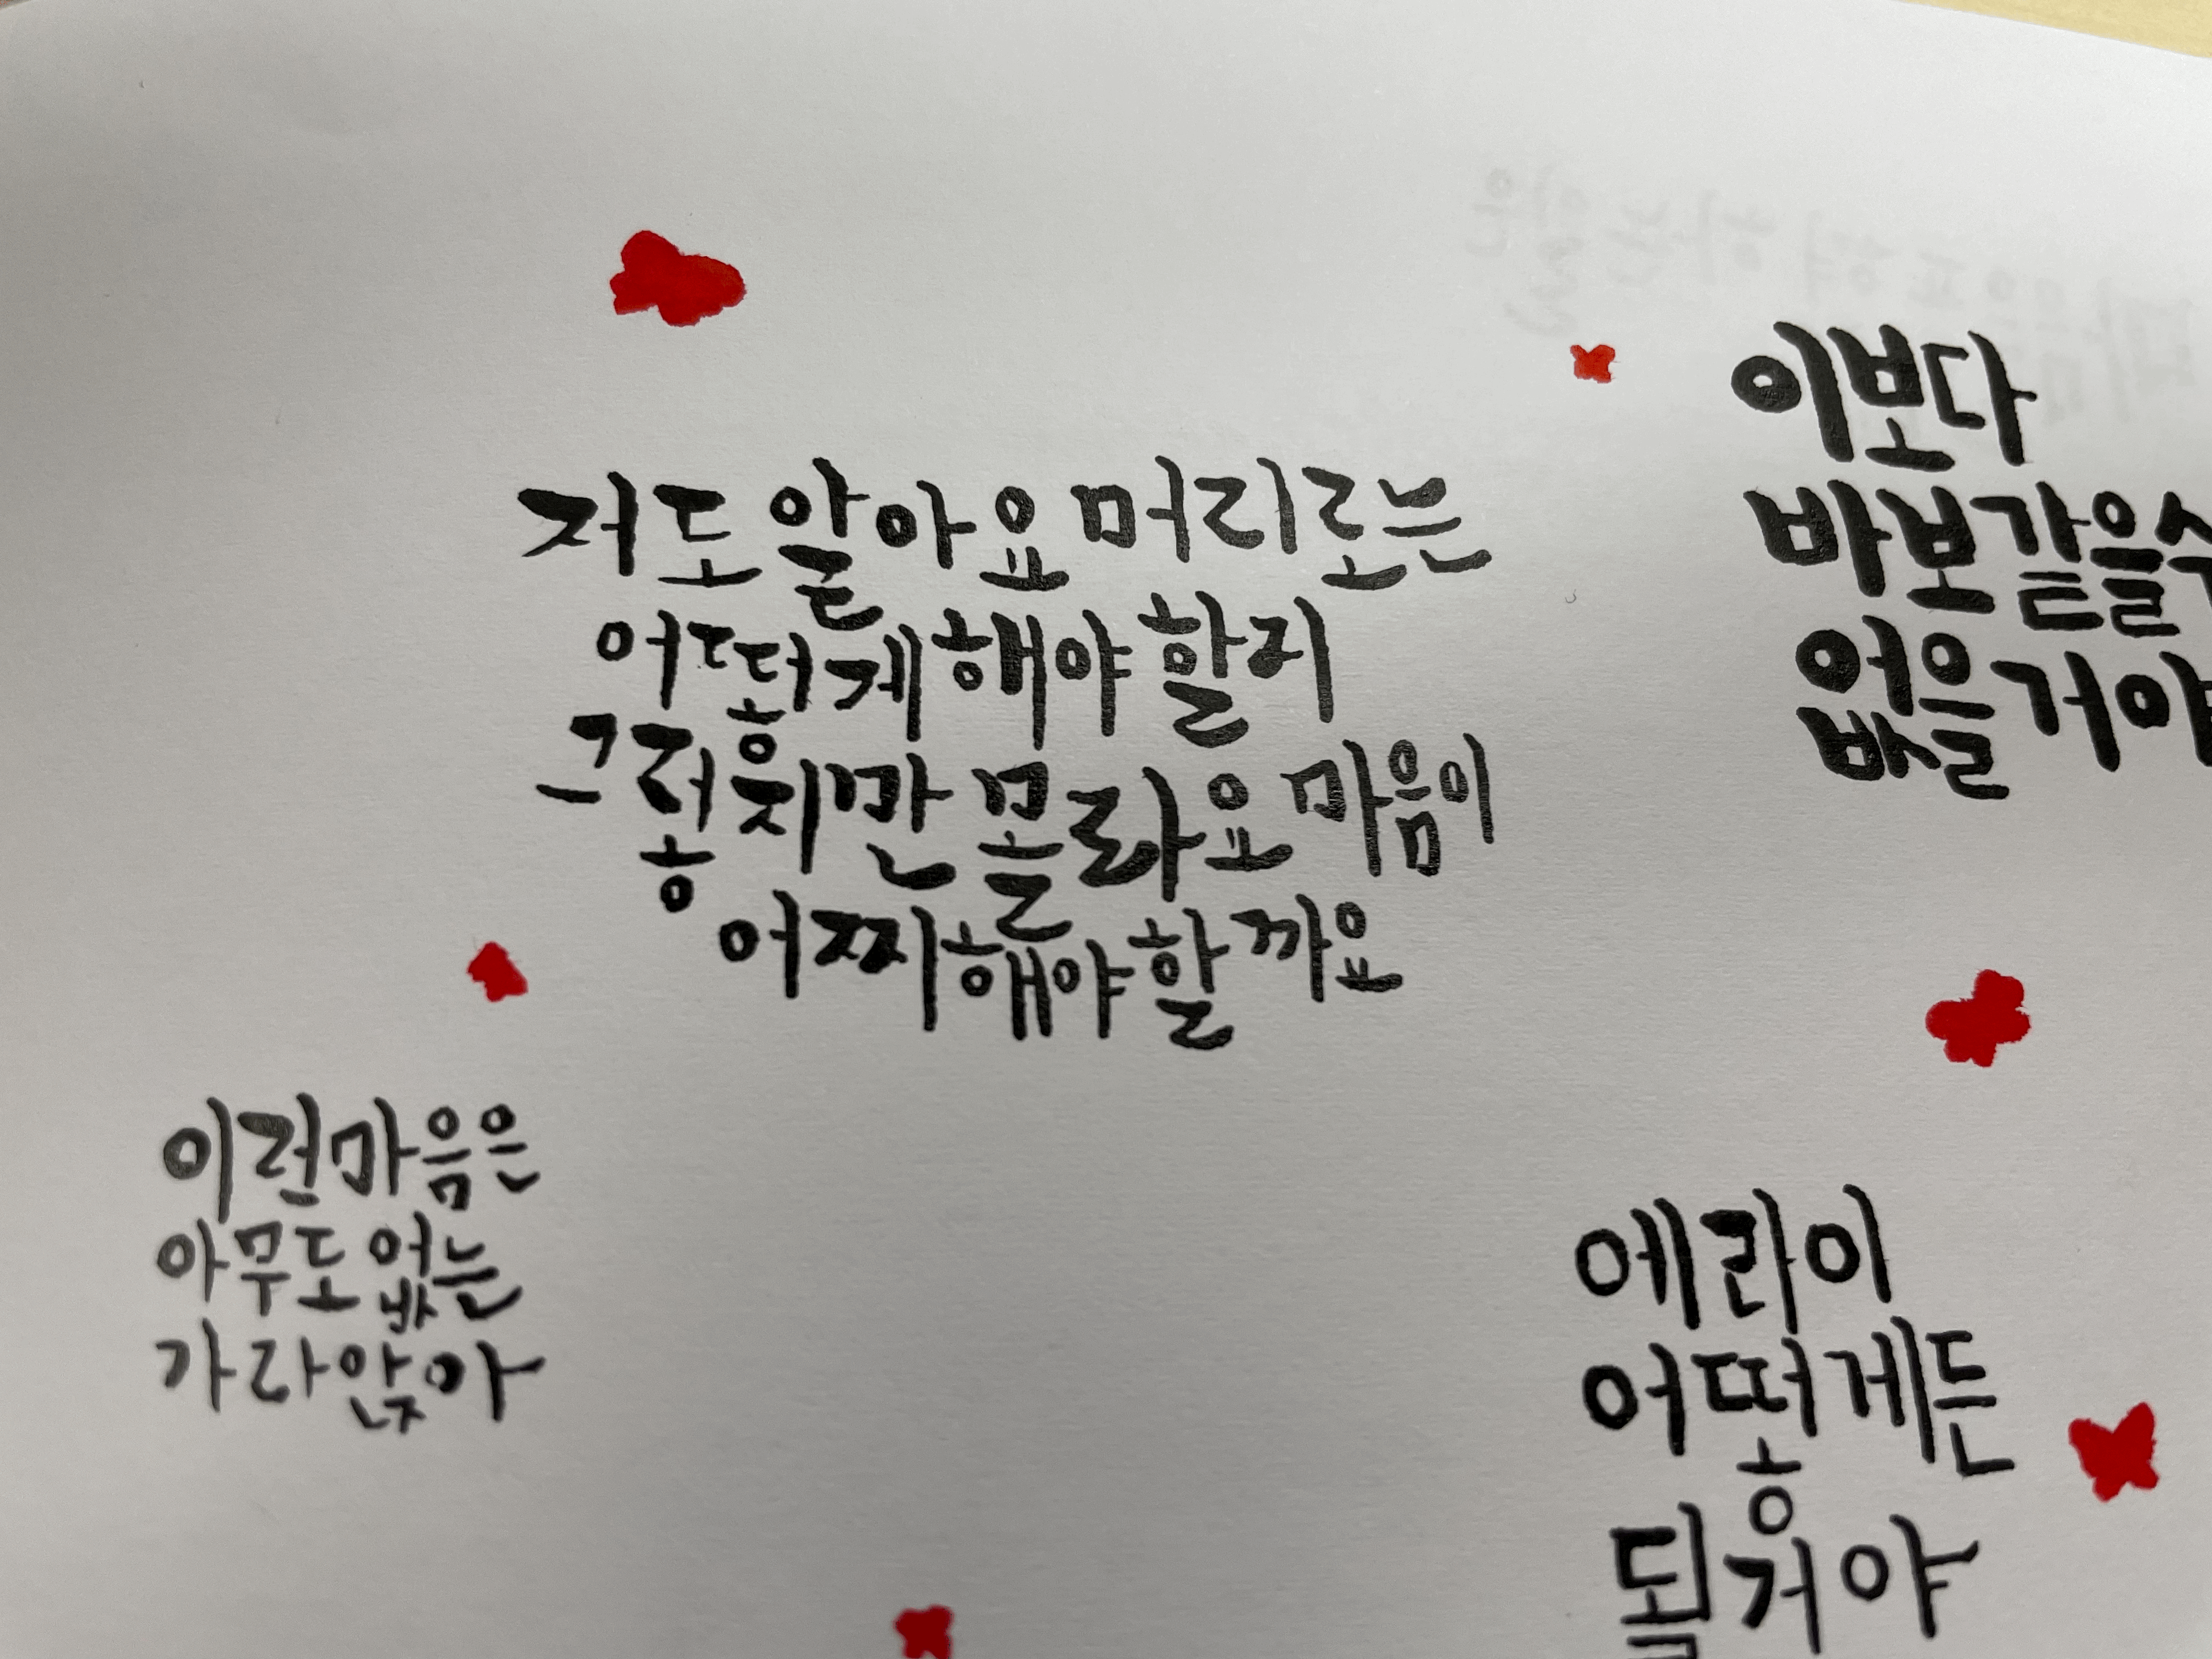 저도 알아요 머리로는
어떻게 해야 할지
그렇지만 몰라요 마음이
어찌해야 할까요
이보다
바보같을수
없을거야
이런마음은
아무도 없는
가라앉아
에라이
어떻게든
될거야